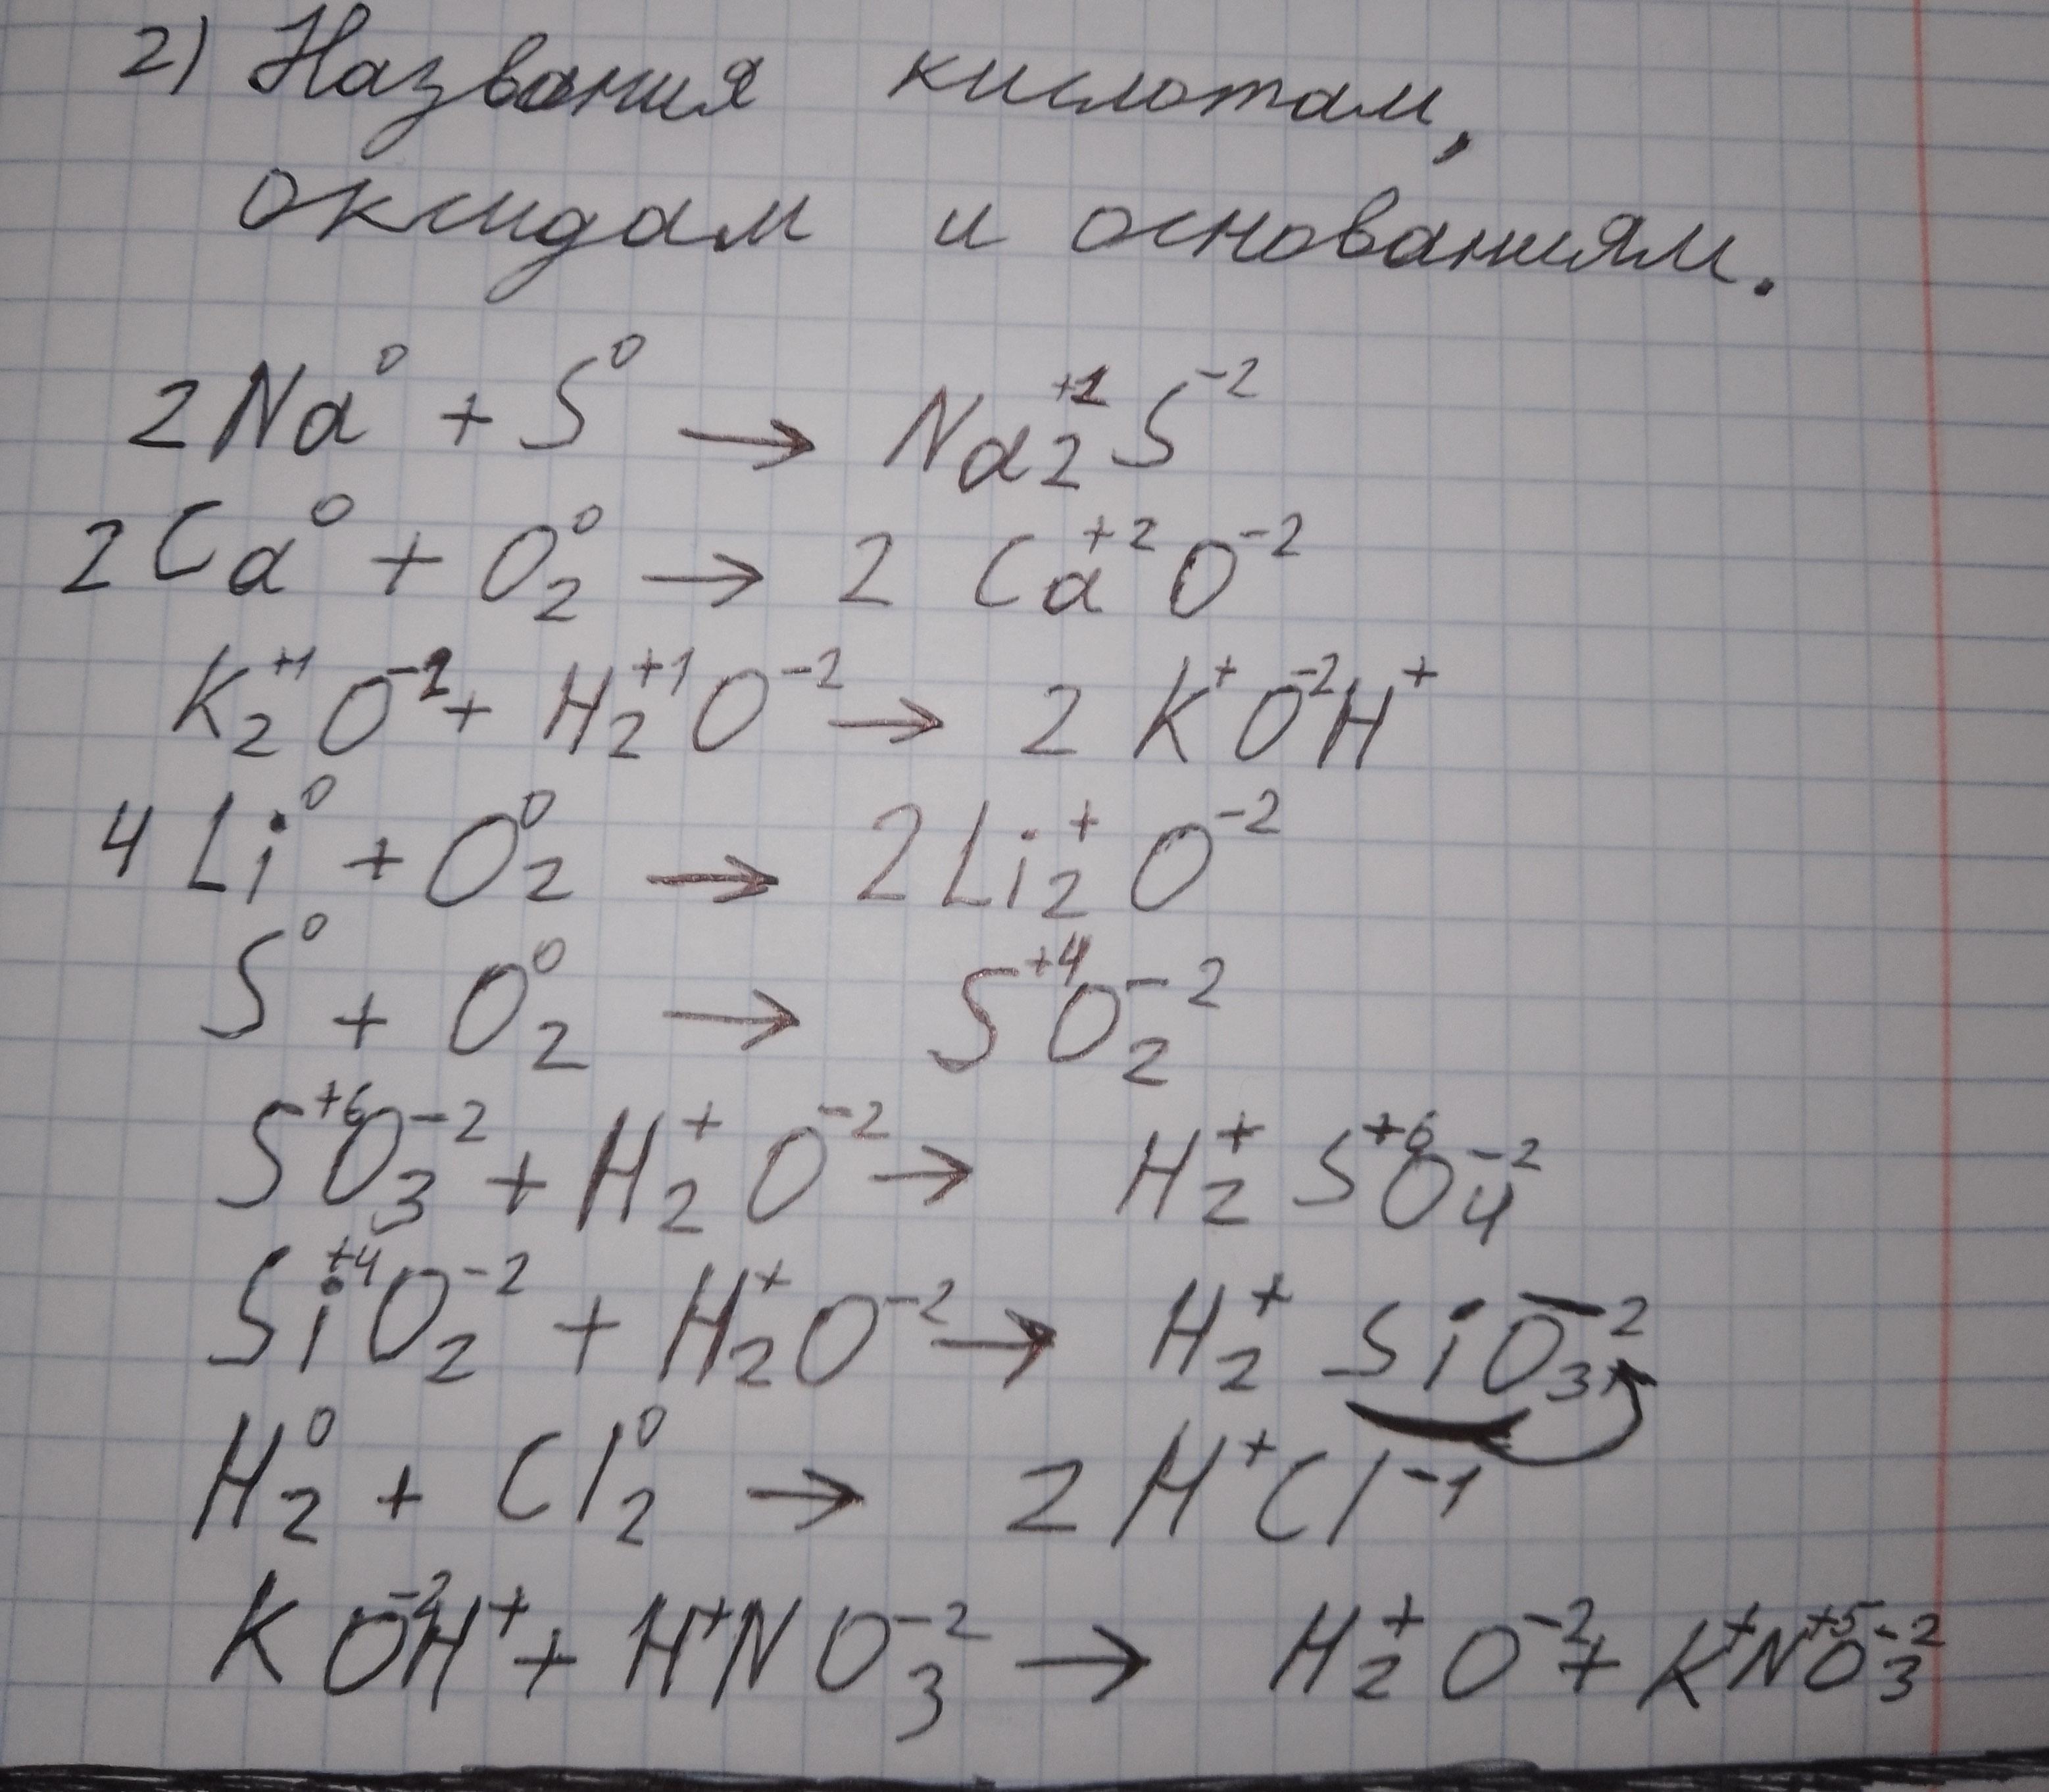 2) Названия кислотам,
оксидам и основаниям.
2Na⁰ + S⁰ → Na₂⁺¹S⁻²
2Ca⁰ + O₂⁰ → 2 Ca⁺²O⁻²
K₂⁺¹O⁻² + H₂⁺¹O⁻² → 2 K⁺O⁻²H⁺
4Li⁰ + O₂⁰ → 2Li₂⁺O⁻²
S⁰ + O₂⁰ → S⁺⁴O₂⁻²
S⁺⁶O₃⁻² + H₂⁺O⁻² → H₂⁺S⁺⁶O₄⁻²
Si⁺⁴O₂⁻² + H₂⁺O⁻² → H₂⁺SiO₃⁻²
H₂⁰ + Cl₂⁰ → 2H⁺Cl⁻¹
KO⁻²H⁺ + H⁺NO₃⁻² → H₂⁺O⁻² + K⁺N⁺⁵O₃⁻²